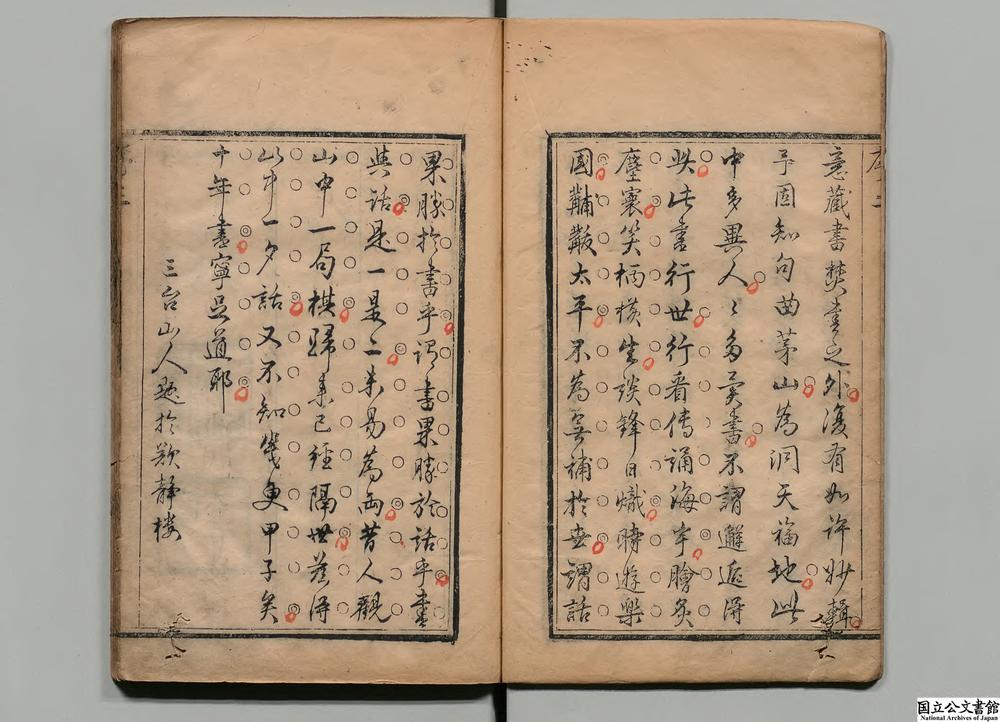 意藏書焚書之外復有如許妙輯
予固知句曲茅山為洞天福地此
中多異人〻多異書不謂邂逅得
此此書行世行看傳誦海宇膾炙
塵寰笑柄橫生談鋒日熾時遊樂
國黼黻太平不為無補於世謂話
果勝於書乎謂書果勝於話乎書
與話是一是二未易為兩昔人觀
山中一局棋歸來已經隔世茲得
此中一夕話又不知幾更甲子矣
十年書寧足道耶
三台山人題於靜樓
国立公文書館
National Archives of Japan